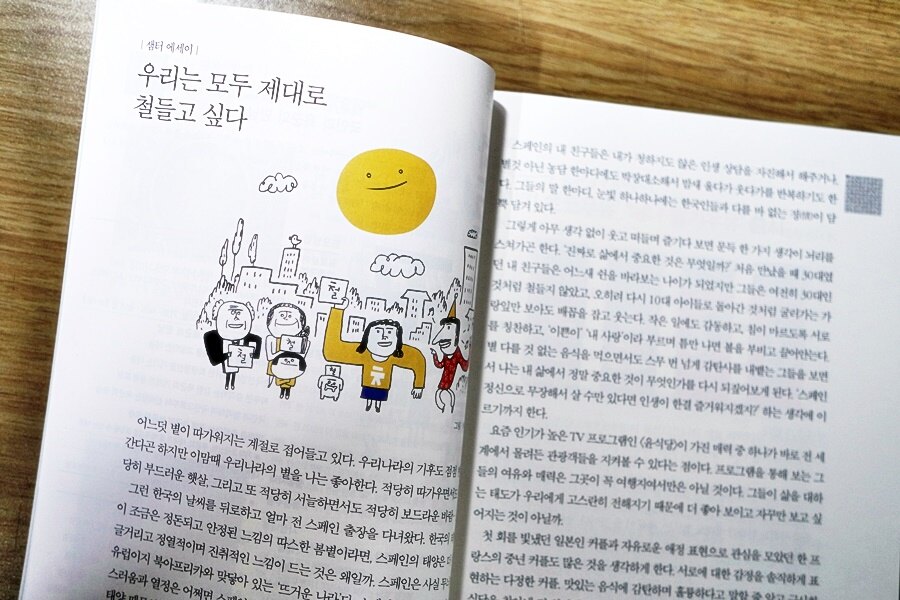 | 샘터 에세이 |
우리는 모두 제대로
철들고 싶다
철
철
철
어느덧 볕이 따가워지는 계절로 접어들고 있다. 우리나라의 기후도 점점
간다곤 하지만 이맘때 우리나라의 볕을 나는 좋아한다. 적당히 따가우면서
당히 부드러운 햇살, 그리고 또 적당히 서늘하면서도 적당히 보드라운 바람
그런 한국의 날씨를 뒤로하고 얼마 전 스페인 출장을 다녀왔다. 한국의
이 조금은 정돈되고 안정된 느낌의 따스한 봄볕이라면, 스페인의 태양은
글거리고 정열적이며 진취적인 느낌이 드는 것은 왜일까. 스페인은 사실
유럽이지 북아프리카와 맞닿아 있는 '뜨거운 나라'다.
스러움과 열정은 어쩌면
스페인의 내 친구들은 내가 청하지도 않은 인생 상담을 자진해서 해주거나,
별것 아닌 농담 한마디에도 박장대소해서 밤새 울다가 웃다가를 반복하기도 한
다. 그들의 말 한마디, 눈빛 하나하나에는 한국인들과 다를 바 없는 정(情)이 담
뿍 담겨 있다.
그렇게 아무 생각 없이 웃고 떠들며 즐기다 보면 문득 한 가지 생각이 뇌리를
스쳐가곤 한다. '진짜로 삶에서 중요한 것은 무엇일까?' 처음 만났을 때 30대였
던 내 친구들은 어느새 쉰을 바라보는 나이가 되었지만 그들은 여전히 30대인
것처럼 철들지 않았고, 오히려 다시 10대 아이들로 돌아간 것처럼 굴러가는 가
랑잎만 보아도 배꼽을 잡고 웃는다. 작은 일에도 감동하고, 침이 마르도록 서로
를 칭찬하고, '이쁜이' '내 사랑'이라 부르며 틈만 나면 볼을 부비고 끌어안는다.
별 다를 것 없는 음식을 먹으면서도 스무 번 넘게 감탄사를 내뱉는 그들을 보면
서 나는 내 삶에서 정말 중요한 것이 무엇인가를 다시 되짚어보게 된다. '스페인
정신으로 무장해서 살 수만 있다면 인생이 한결 즐거워지겠지?' 하는 생각에 이
르기까지 한다.
요즘 인기가 높은 TV 프로그램인 〈윤식당〉이 가진 매력 중 하나가 바로 전 세
계에서 몰려든 관광객들을 지켜볼 수 있다는 점이다. 프로그램을 통해 보는 그
들의 여유와 매력은 그곳이 꼭 여행지여서만은 아닐 것이다. 그들이 삶을 대하
는 태도가 우리에게 고스란히 전해지기 때문에 더 좋아 보이고 자꾸만 보고 싶
어지는 것이 아닐까.
첫 회를 빛냈던 일본인 커플과 자유로운 애정 표현으로 관심을 모았던 한 프
랑스의 중년 커플도 많은 것을 생각하게 한다. 서로에 대한 감정을 솔직하게 표
현하는 다정한 커플, 맛있는 음식에 감탄하며 훌륭하다고 말할 줄 알고